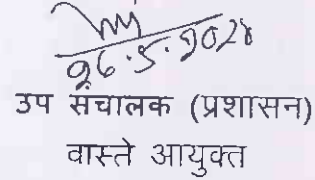 26.5.2028
उप संचालक (प्रशासन)
वास्ते आयुक्त